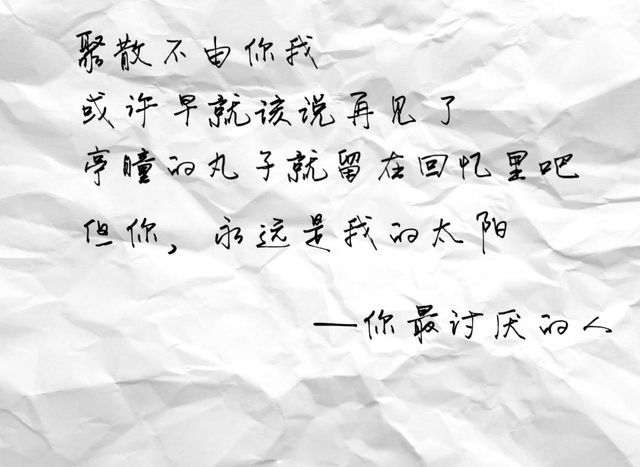 聚散不由你我
或许早就该说再见了
亭瞳的丸子就留在回忆里吧
但你，永远是我的太阳
——你最讨厌的人